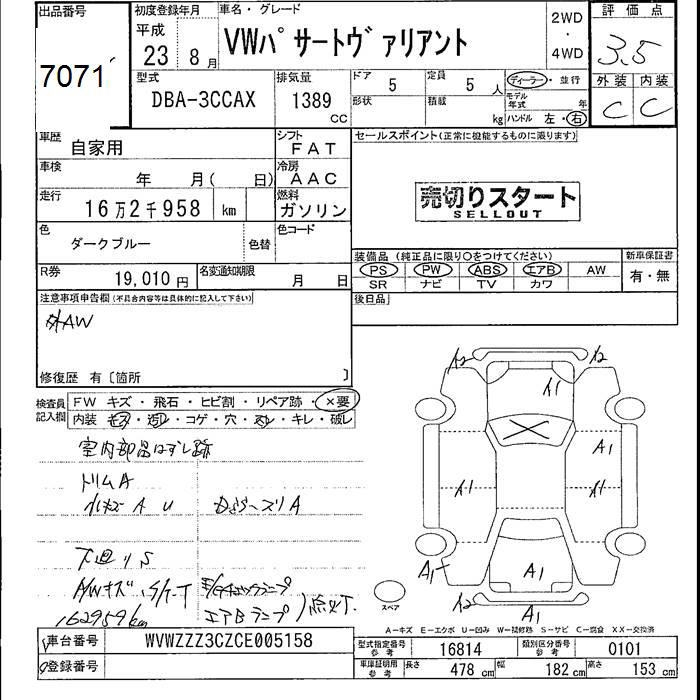 出品番号
7071
初度登録年月
平成
23 8月
車名・グレード
VWパサートヴァリアント
2WD
・
4WD
評価点
3.5
外装 内装
C C
型式
DBA-3CCAX
排気量
1389
CC
ドア
5
定員
5 人
形状
積載
kg
ディーラー・並行
モデル年式 年
ハンドル 左・右
車歴
自家用
シフト
FAT
車検
年 月( 日)
冷房
AAC
走行
16万2千958 km
燃料
ガソリン
色
ダークブルー
色替
色コード
R券
19,010円
名変通知期限
月 日
セールスポイント(正常に機能するものに限ります)
売切りスタート
SELLOUT
装備品 (純正品に限り○をつけてください)
PS PW ABS エアB AW
SR ナビ TV カワ
新車保証書
有・無
後日品
注意事項申告欄(不具合内容等は具体的に記入して下さい)
外AW
修復歴 有〔箇所 〕
検査員記入欄
FW キズ・飛石・ヒビ割・リペア跡・×要
内装 モス・汚レ・コゲ・穴・スレ・キレ・破レ
室内部品はずし跡
トリムA
下廻りS
A/Wキズ
162959km
エアBランプ
点灯
A2 A2
A1
A1
A1 A1
A1
A1
A2
A1
スペア
A-キズ E-エクボ U-凹み W-補修跡 S-サビ C-腐食 XX-交換済
車台番号 WVWZZZ3CZCE005158
登録番号
型式指定番号参考 16814
類別区分番号参考 0101
車庫証明用参考
長さ 478 cm 幅 182 cm 高さ 153 cm